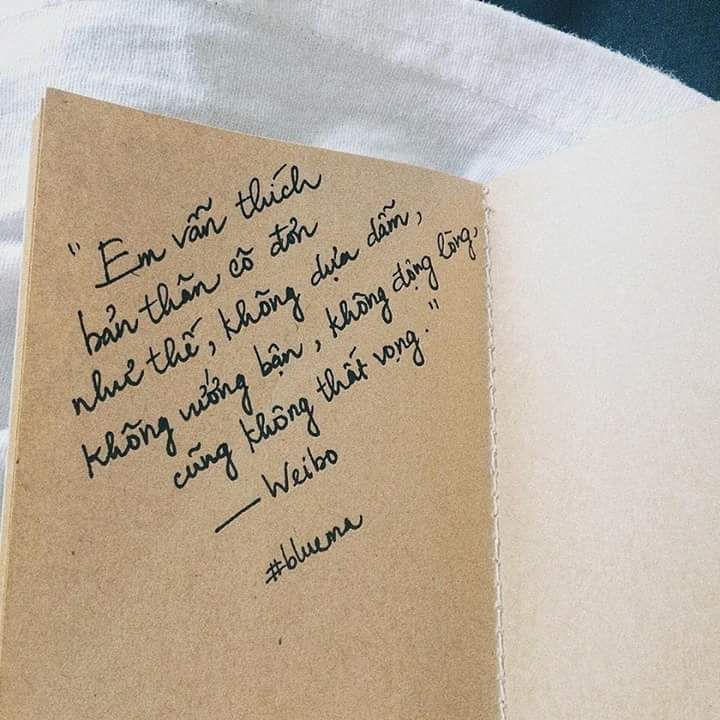 "Em vẫn thích
bản thân cô đơn
như thế, không dựa dẫm,
không vướng bận, không động lòng,
cũng không thất vọng."
— Weibo
#bluema